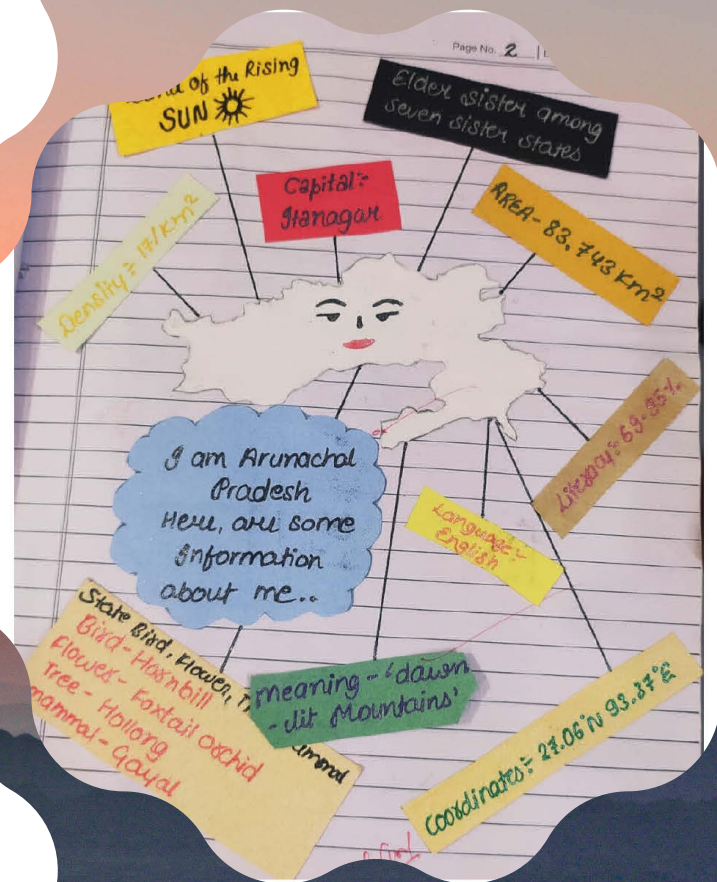 Page No. 2
of the Rising
SUN
Elder sister among
seven sister states
Capital:-
Itanagar
AREA- 83,743 Km2
Density:- 17/Km2
Literacy:- 69.95%
I am Arunachal
Pradesh
Here, are some
Information
about me..
Language:-
English
State Bird, Flower,
Bird- Hornbill
Flower- Foxtail orchid
Tree - Hollong
mammal- Gayal
meaning - 'dawn
- lit Mountains'
Coordinates:- 27.06°N 93.37°E